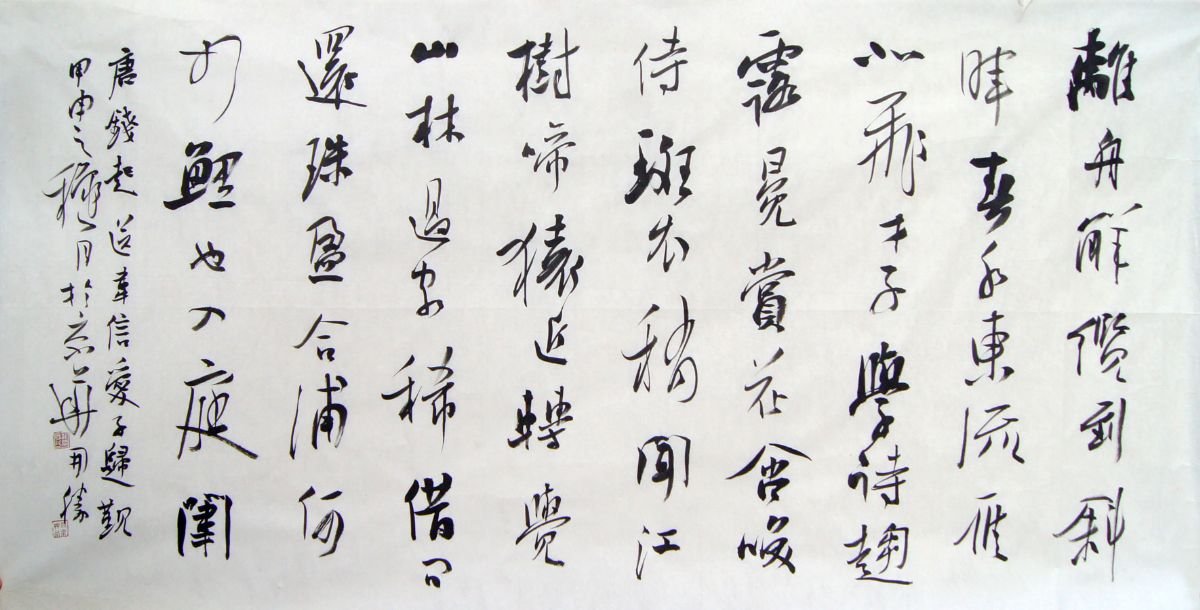 離舟解纜到斜
暉春水東流雁
北飛才子學詩趨
露冕賞花含咲
侍斑衣稍聞江
樹啼猿近轉覺
山林過客稀借問
還珠盈合浦何
如鯉也入庭闈
唐錢起送韋信愛子歸覲
甲申之月於京華用勝